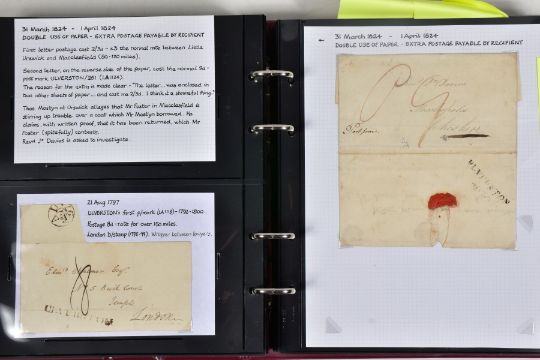 31 March 1824 - 1 April 1824
DOUBLE USE OF PAPER - EXTRA POSTAGE PAYABLE BY RECIPIENT
First letter postage cost 2/3d - x3 the normal rate between Little
Urswick and Macclesfield (80-120 miles).
Second letter, on the reverse side of the paper, cost the normal 9d -
post mark ULVERSTON/261 (LA1124).
The reason for the extra is made clear - "The letter...was enclosed in
two other sheets of paper ... and cost me 2/3d. I think it a shameful thing."
Thos. Mostyn at Urswick alleges that Mr Foster in Macclesfield is
stirring up trouble over a coat which Mr Mostyn borrowed. He
claims, with written proof, that it has been returned, which Mr
Foster (spitefully) contests.
Revd Jn Davies is asked to investigate.
21 Aug 1797
ULVERSTON's first p/mark (LA1118) - 1792-1800.
Postage 8d - rate for over 150 miles.
London b/stamp (1796-99). Wrapper between lawyers.
8
No 5
Temple
London
ULVERSTON
31 March 1824 - 1 April 1824
DOUBLE USE OF PAPER - EXTRA POSTAGE PAYABLE BY RECIPIENT
Macclesfield
ULVERSTON